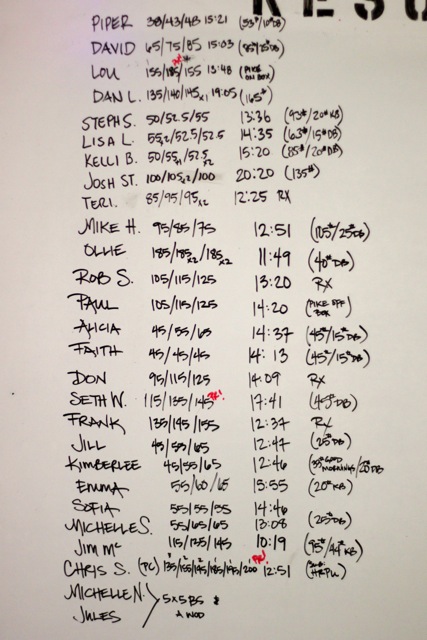 RESU
PIPER 38/43/48 15:21 (53#/10#DB)
DAVID 65/75/85 15:03 (85#/25#DB)
LOU 155/185/155 13:48 (PIKE ON BOX)
DAN L. 135/140/145x1 19:05 (165#)
STEPH S. 50/52.5/55 13:36 (93#/20#KB)
LISA L. 55x2/52.5/52.5 14:35 (63#/15#DB)
KELLI B. 50/55x1/52.5x2 15:20 (85#/20#DB)
JOSH ST. 100/105x2/100 20:20 (135#)
TERI. 85/95/95x2 12:25 RX
MIKE H. 95/85/75 12:51 (105#/25#DB)
OLLIE 185/185x2/185x2 11:49 (40#DB)
ROB S. 105/115/125 13:20 RX
PAUL 105/115/125 14:20 (PIKE OFF BOX)
ALICIA 45/55/65 14:37 (45#/15#DB)
FAITH 45/45/45 14:13 (45#/15#DB)
DON 95/115/125 14:09 RX
SETH W. 115/135/145 PR! 17:41 (45#DB)
FRANK 135/145/155 12:37 RX
JILL 45/55/65 12:47 (25#DB)
KIMBERLEE 45/55/65 12:46 (35# GOOD MORNINGS/20#DB
EMMA 55/60/65 15:55 (20#KB)
SOFIA 55/55/55 14:46
MICHELLE S. 55/65/65 13:08 (25#DB)
JIM MC 115/135/145 10:19 (95#/44#KB)
CHRIS S. (PC) 135/155/175/185/195/200 PR! 12:51
MICHELLE N. 5x5 BS &
JULES A WOD